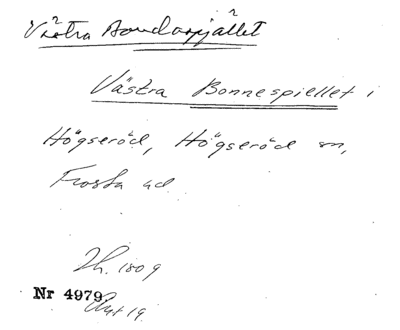 Västra Bondaspjället
Västra Bonnespiellet i
Högseröd, Högseröd sn,
Frosta hd
Nr 4979